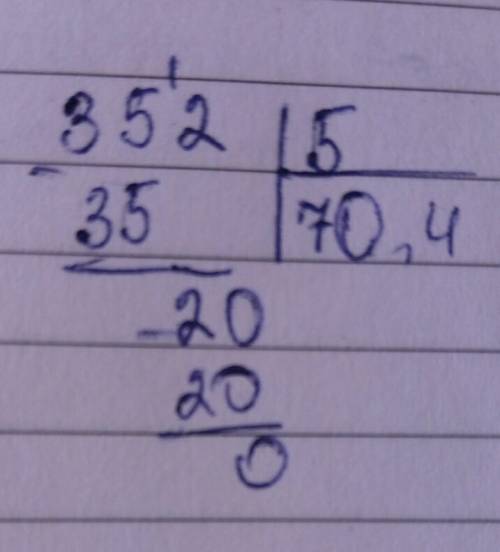 352 | 5
- 35 | 70,4
- 20
20
0